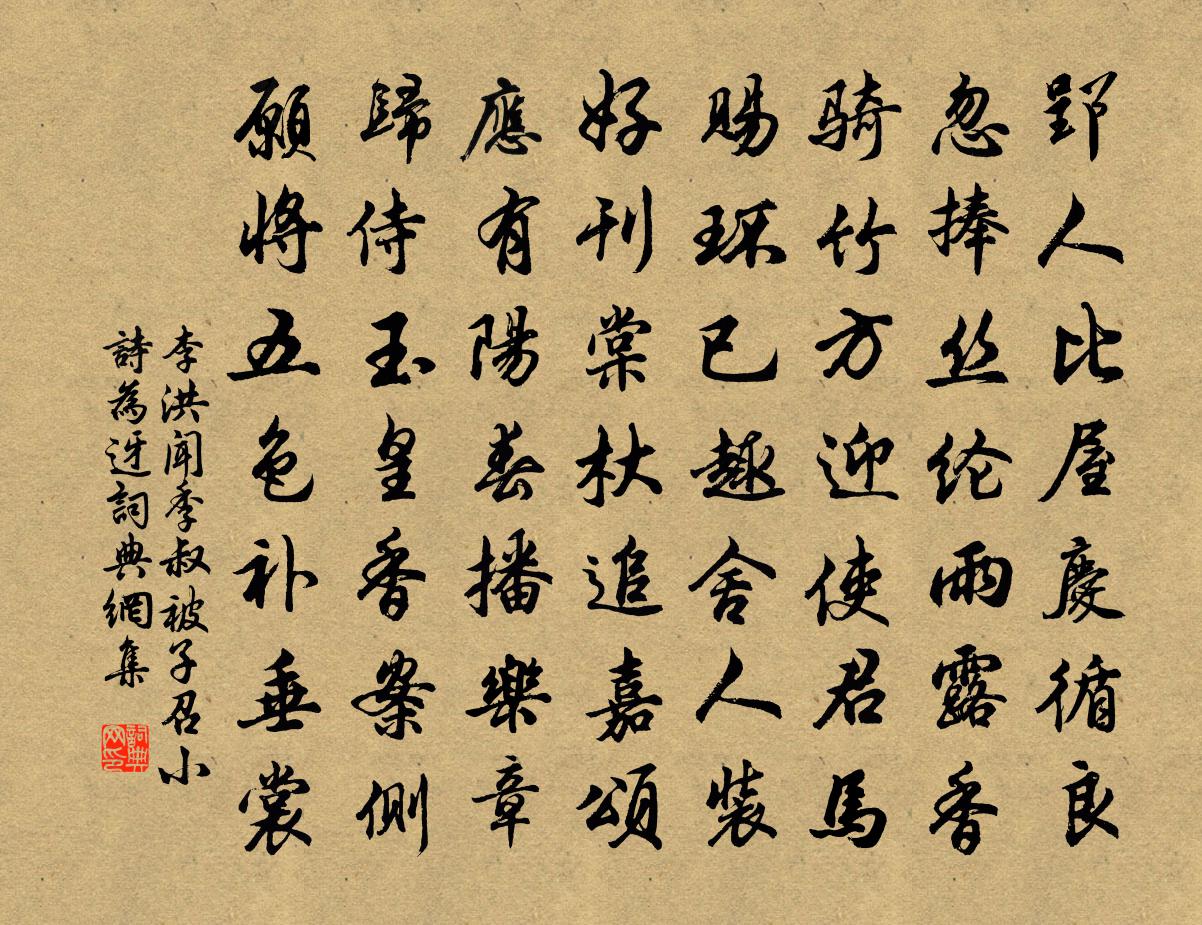 郢人比屋慶循良
忽捧丝纶雨露香
骑竹方迎使君馬
赐环已趣舍人装
好刊棠杕追嘉頌
應有陽春播樂章
歸侍玉皇香案側
願将五色补垂裳
李洪闻季叔被子召小
詩為迓詞典網集
詞典网印